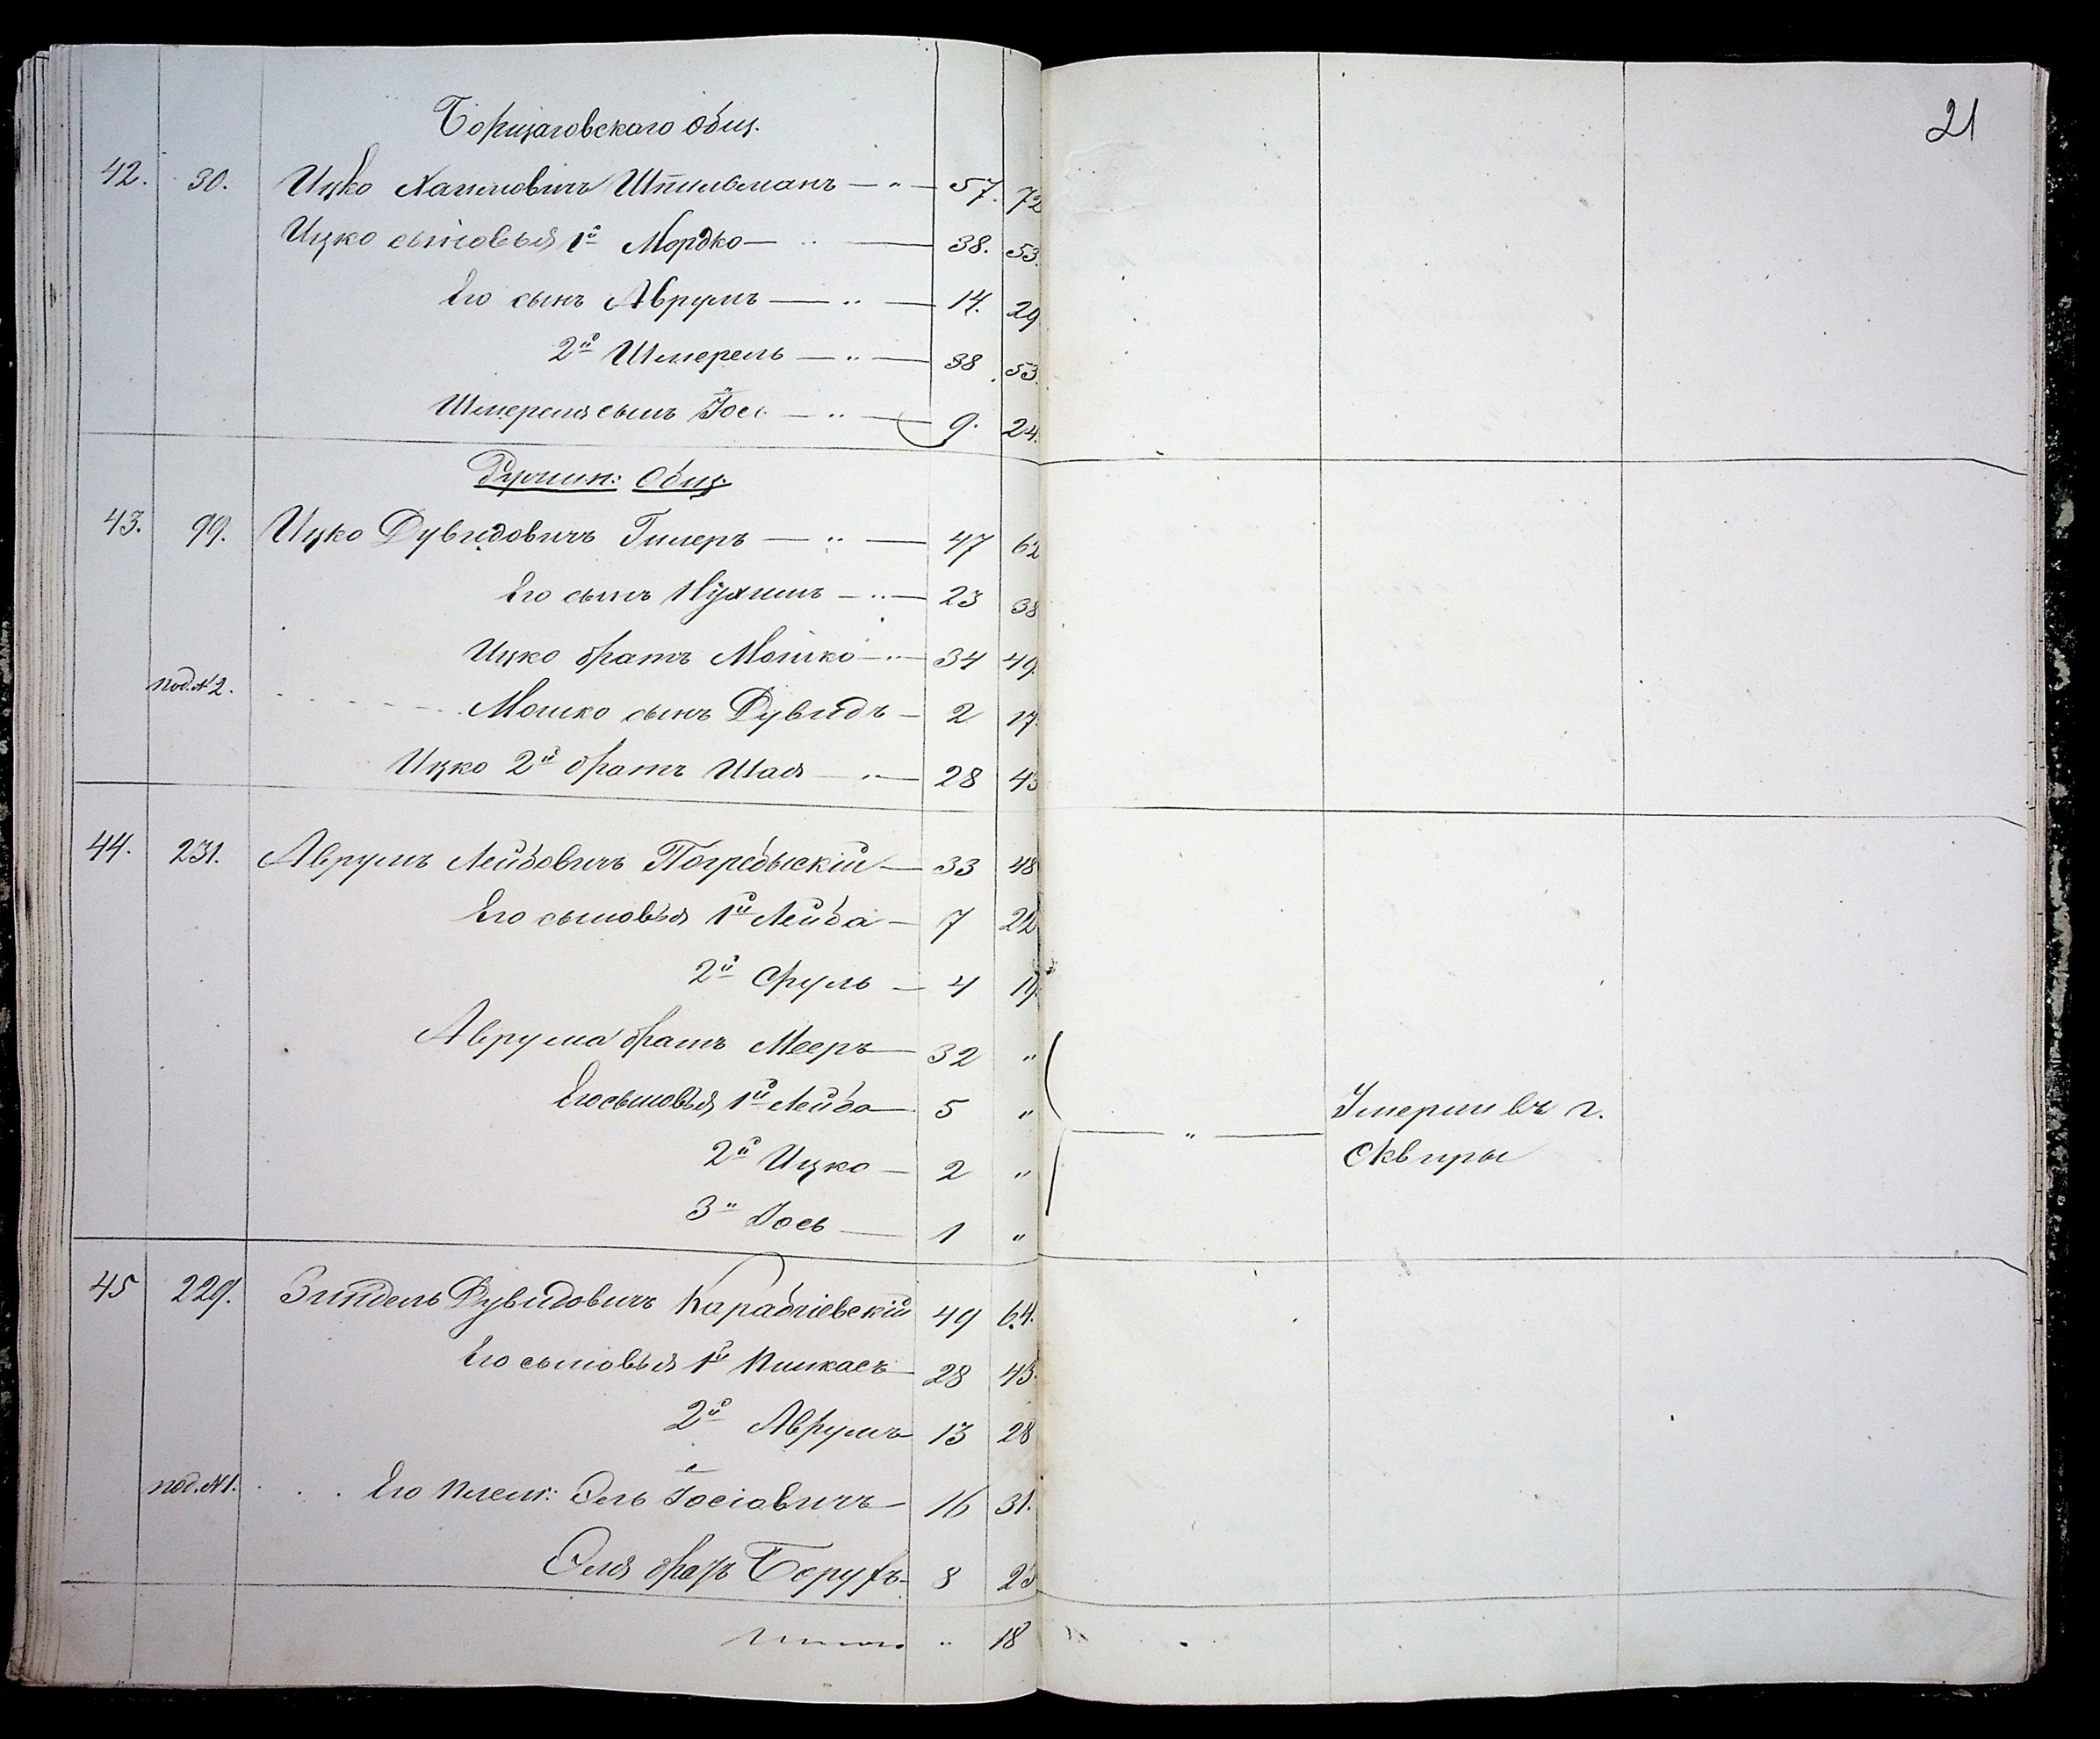 21
Борщаговскаго Общ.
42. 30. Ицко Хаимовичъ Шпильманъ — " — 57. 72
Ицко сыновья 1й Мордко — " — 38. 53.
Его сынъ Аврумъ — " — 14. 29
2й Шмерель — " — 38 53.
Шмереля сынъ Іось — " — 9. 24.
Ружин: Общ.
43. 99. Ицко Дувидовичъ Гилеръ — " — 47 62
Его сынъ Нухимъ — " — 23 38
Ицко братъ Мошко — " — 34 49.
под. №2. Мошко сынъ Дувидъ — 2 17.
Ицко 2й братъ Шая — " — 28 43
44. 231. Аврумъ Лейбовичъ Погребыскій — 33 48
Его сыновья 1й Лейба — 7 22
2й Сруль — 4 19.
Аврума братъ Мееръ — 32 "
Его сыновья 1й Лейба — 5 "
— " — Умерли въ г.
Сквиры
2й Ицко — 2 "
3" Іось — 1 "
45 229. Зиндель Дувидовичъ Карабчіевскій 49 64.
Его сыновья 1й Пинкасъ — 28 43.
2й Аврумъ 13 28
под. №1. Его племя: Эль Іосіовичъ — 16 31.
Эля братъ Борухъ — 8 23
Итого " 18